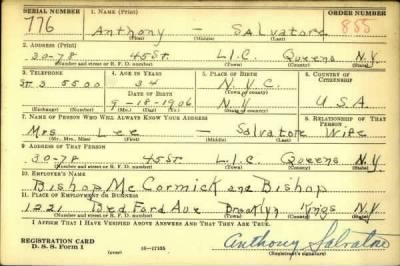 SERIAL NUMBER 1. NAME (Print) ORDER NUMBER
776 Anthony – Salvatore 855
(First) (Middle) (Last)
2. ADDRESS (Print)
30-78 45 St. L.I.C. Queens N.Y.
(Number and street or R. F. D. number) (Town) (County) (State)
3. TELEPHONE 4. AGE IN YEARS 5. PLACE OF BIRTH 6. COUNTRY OF CITIZENSHIP
St. 3 5500 34 N.Y.C.
DATE OF BIRTH (Town or county)
9-18-1906 N.Y. U.S.A.
(Exchange) (Number) (Mo.) (Day) (Yr.) (State or country)
7. NAME OF PERSON WHO WILL ALWAYS KNOW YOUR ADDRESS 8. RELATIONSHIP OF THAT PERSON
Mrs. Lee – Salvatore Wife
(Mr., Mrs., Miss) (First) (Middle) (Last)
9. ADDRESS OF THAT PERSON
30-78 45 St. L.I.C. Queens N.Y.
(Number and street or R. F. D. number) (Town) (County) (State)
10. EMPLOYER'S NAME
Bishop McCormick and Bishop
11. PLACE OF EMPLOYMENT OR BUSINESS
1221 Bedford Ave Brooklyn Kings N.Y.
(Number and street or R. F. D. number) (Town) (County) (State)
I AFFIRM THAT I HAVE VERIFIED ABOVE ANSWERS AND THAT THEY ARE TRUE.
REGISTRATION CARD
D. S. S. Form 1 (over) 16-17105 Anthony Salvatore
(Registrant's signature)